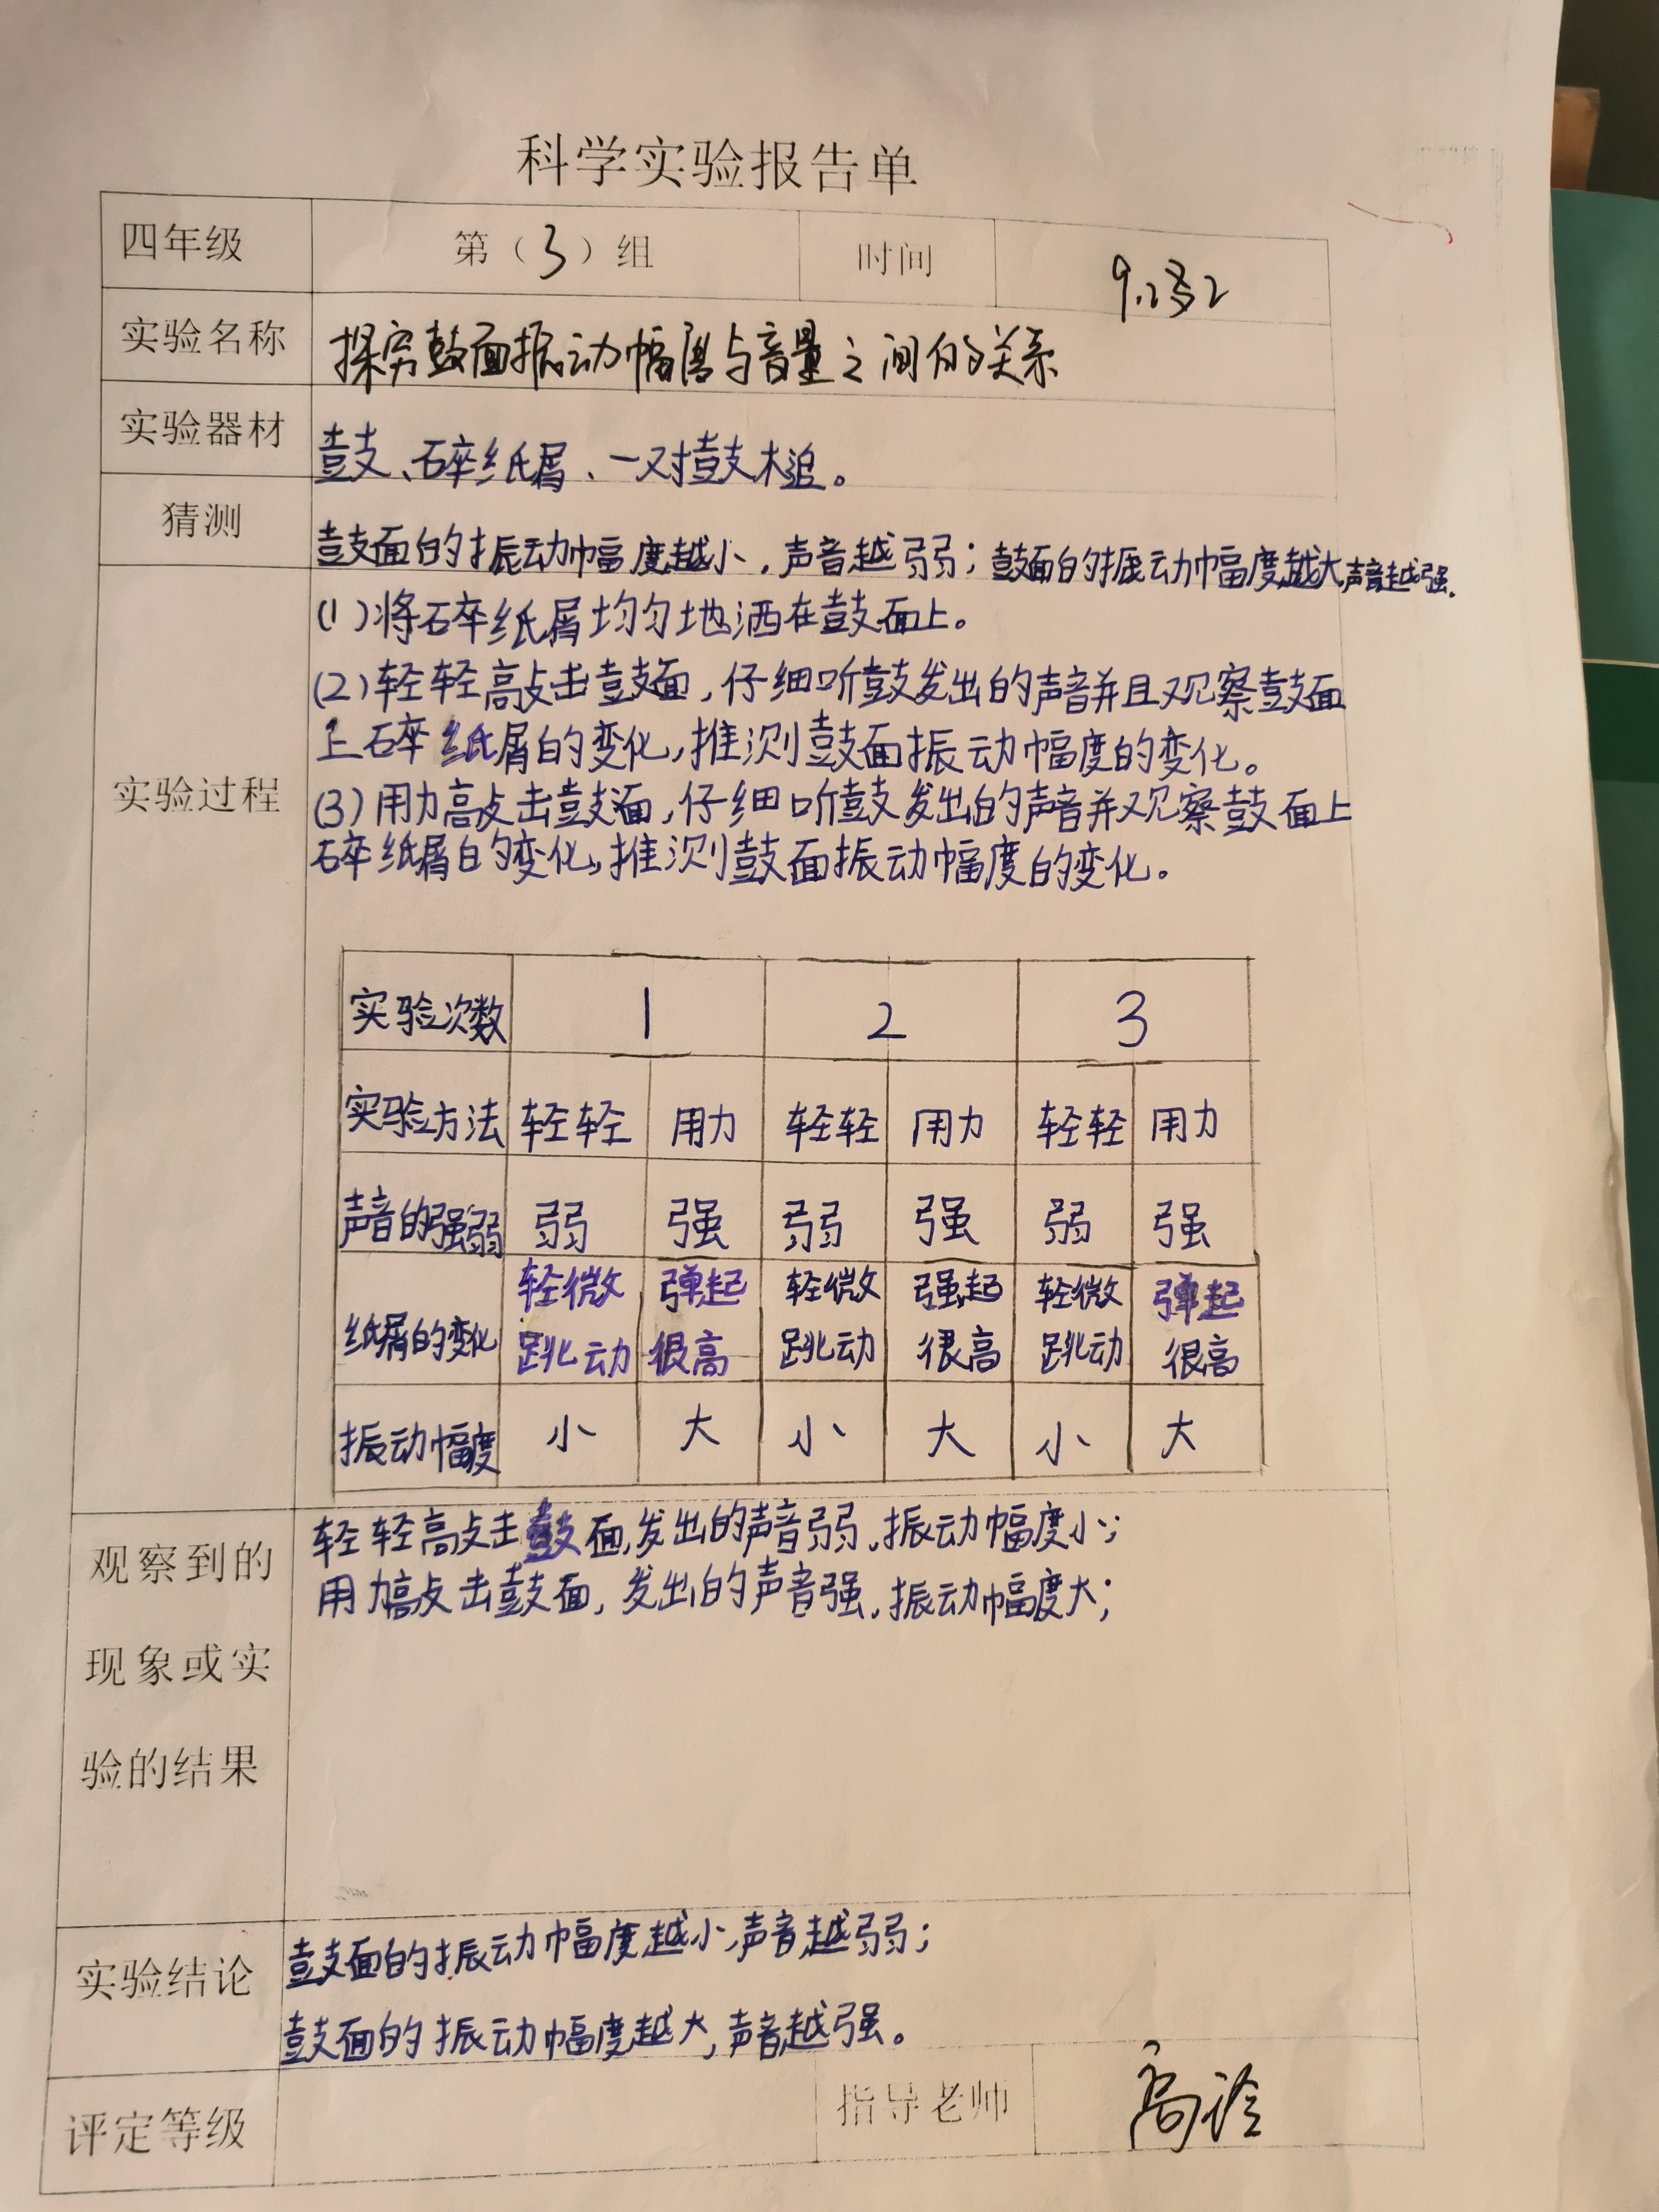 科学实验报告单
四年级 第（3）组 时间
实验名称 探究鼓面振动幅度与音量之间的关系
实验器材 鼓、碎纸屑、一对鼓木追。
猜测 鼓面的振动幅度越小，声音越弱；鼓面的振动幅度越大，声音越强.
(1)将碎纸屑均匀地洒在鼓面上。
(2)轻轻敲击鼓面，仔细听鼓发出的声音并且观察鼓面
上碎纸屑的变化，推测鼓面振动幅度的变化。
实验过程 (3)用力敲击鼓面，仔细听鼓发出的声音并观察鼓面上
碎纸屑的变化，推测鼓面振动幅度的变化。
实验次数 1 2 3
实验方法 轻轻 用力 轻轻 用力 轻轻 用力
声音的强弱 弱 强 弱 强 弱 强
纸屑的变化 轻微跳动 弹起很高 轻微跳动 强起很高 轻微跳动 弹起很高
振动幅度 小 大 小 大 小 大
观察到的 轻轻敲击鼓面，发出的声音弱，振动幅度小；
用力敲击鼓面，发出的声音强，振动幅度大；
现象或实
验的结果
实验结论 鼓面的振动幅度越小，声音越弱；
鼓面的振动幅度越大，声音越强。
评定等级 指导老师